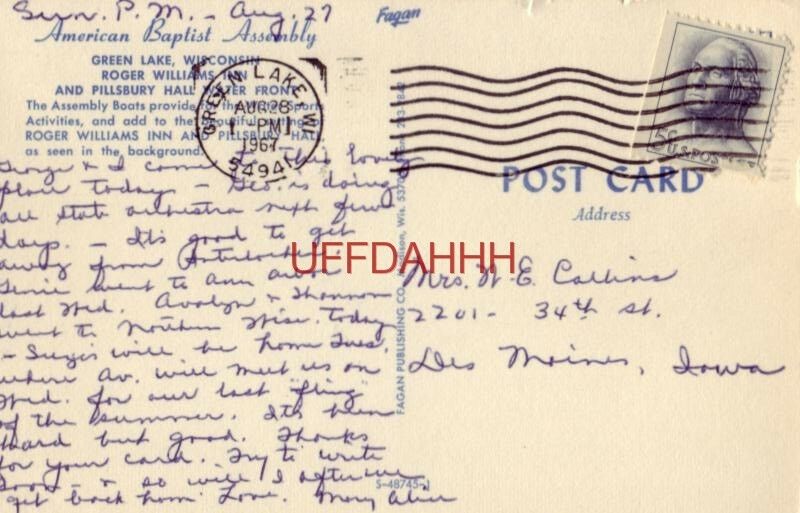 Sun. P.M. - Aug. 27
American Baptist Assembly
GREEN LAKE, WISCONSIN
ROGER WILLIAMS INN
AND PILLSBURY HALL WATER FRONT
The Assembly Boats provide for the Water Sports
Activities, and add to the beautiful setting of
ROGER WILLIAMS INN AND PILLSBURY HALL
as seen in the background.
George & I came to this lovely
place today - Geo. is doing
all state orchestra next few
days. - It's good to get
away from
went to Ann Arbor
last Wed. Avalyn & Shannon
went to Northern Wisc. today
- Suzie will be home Tues.
where Av. will meet us on
Wed. for our last "fling"
of the summer. It's been
hard but good. Thanks
for your card. Try to write
soon - & so will I after we
get back home. Love. Mary Alice
Fagan
GREEN LAKE, WI
AUG 28
1 PM
1967
54941
5¢ U.S. POS
POST CARD
Address
UFFDAHHH
Mrs. W. E. Collins
2201 - 34th st.
Des Moines, Iowa
FAGAN PUBLISHING CO. Madison, Wis. 5370
S-48745-1